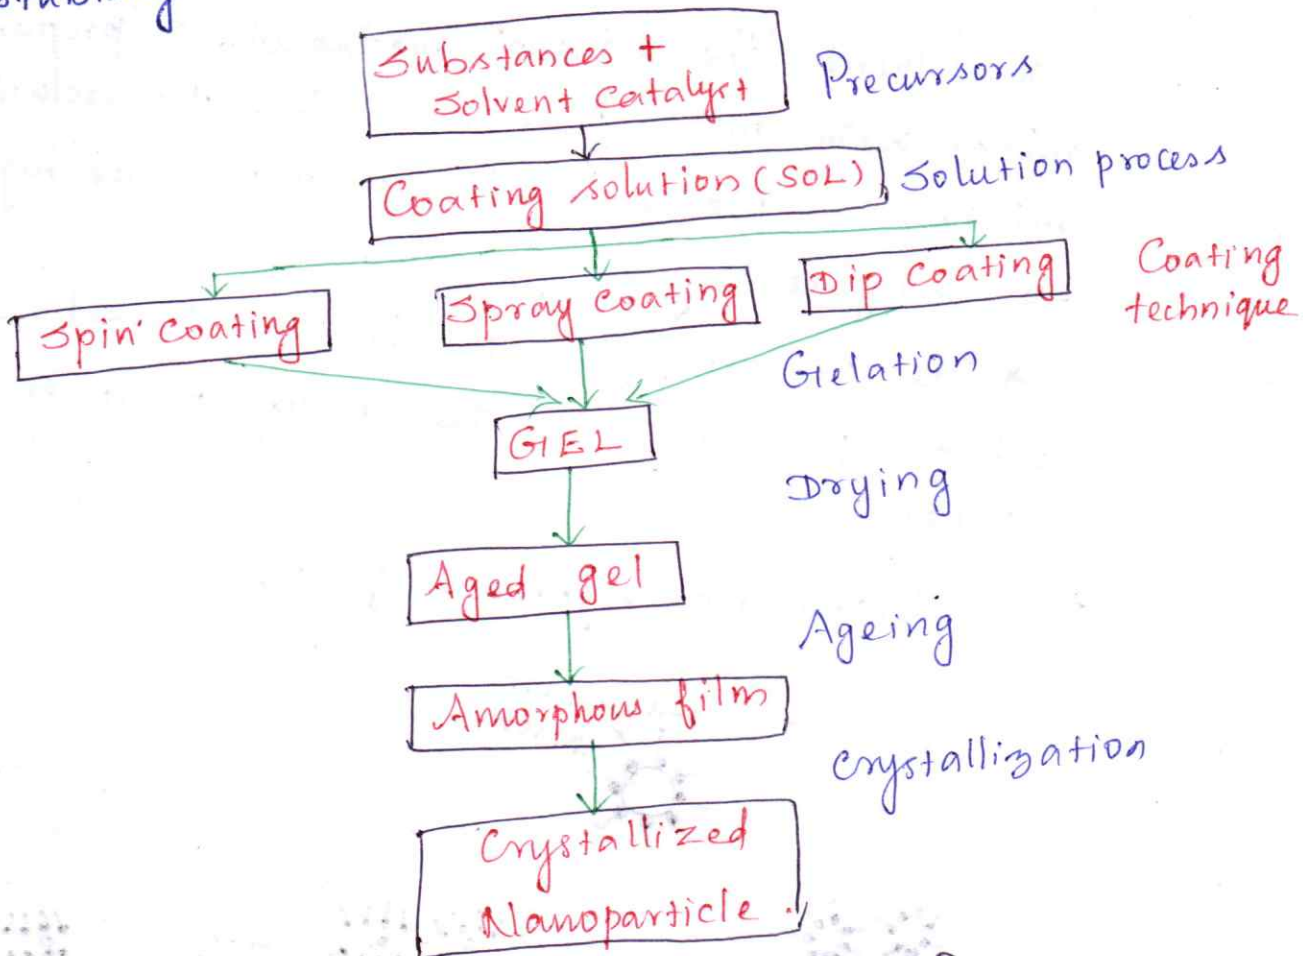 Substances +
Solvent catalyst
Precursors
Coating solution (SOL)
Solution process
Spin coating
Spray coating
Dip coating
Coating
technique
Gelation
GEL
Drying
Aged gel
Ageing
Amorphous film
Crystallization
Crystallized
Nanoparticle.